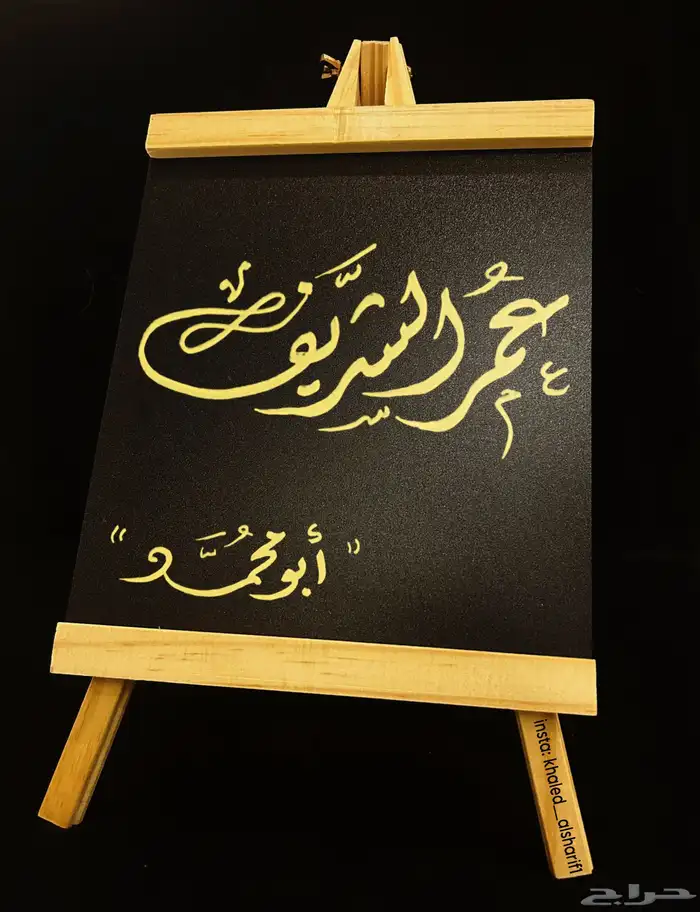 عُمر الشَّريف
"أبو محمَّد"
insta: khaled__alsharif1
حراج